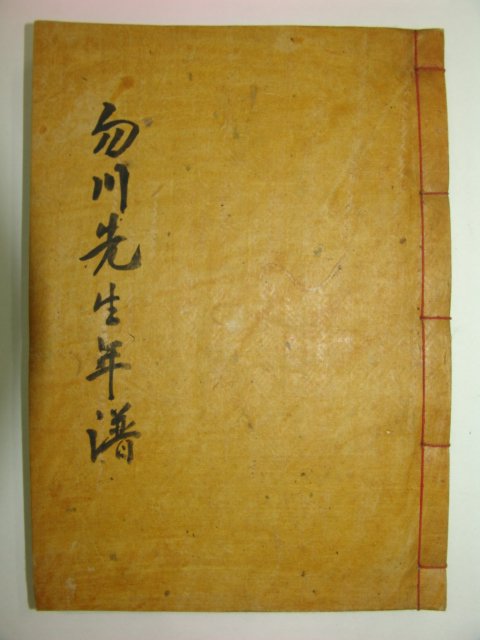 勿川先生年譜